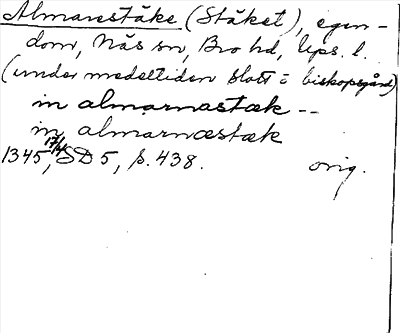 Almarestäke (Stäket), egen-
dom, Näs sn, Bro hd, Upps. l.
(under medeltiden slott o biskopsgård)
in almarnastæk --
in almarnæstæk
1345 17/4, SD 5, s. 438. orig.